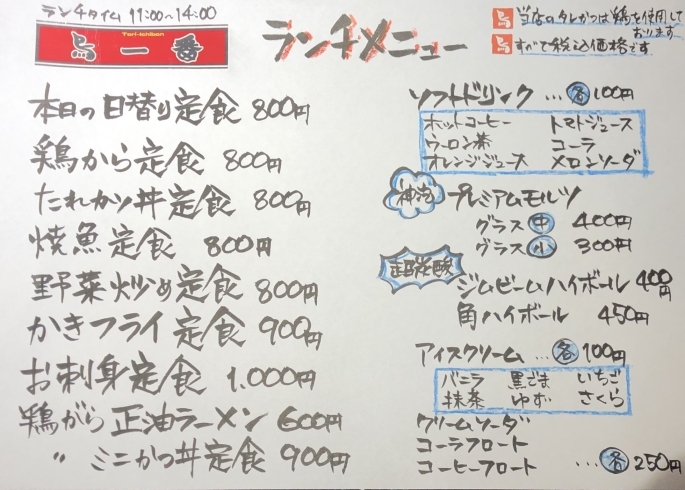 ランチタイム 11:00~14:00
Tori-ichiban
鳥一番
ランチメニュー
鳥 当店のタレかつは鶏を使用して
おります
鳥 すべて税込価格です
本日の日替り定食 800円
鶏から定食 800円
たれカツ丼定食 800円
焼魚定食 800円
野菜炒め定食 800円
かきフライ定食 900円
お刺身定食 1.000円
鶏がら正油ラーメン 600円
〃 ミニかつ丼定食 900円
ソフトドリンク …各100円
ホットコーヒー トマトジュース
ウーロン茶 コーラ
オレンジジュース メロンソーダ
神泡 プレミアムモルツ
グラス中 400円
グラス小 300円
超炭酸 ジムビームハイボール 400円
角ハイボール 450円
アイスクリーム …各100円
バニラ 黒ごま いちご
抹茶 ゆず さくら
クリームソーダ
コーラフロート
コーヒーフロート …各250円